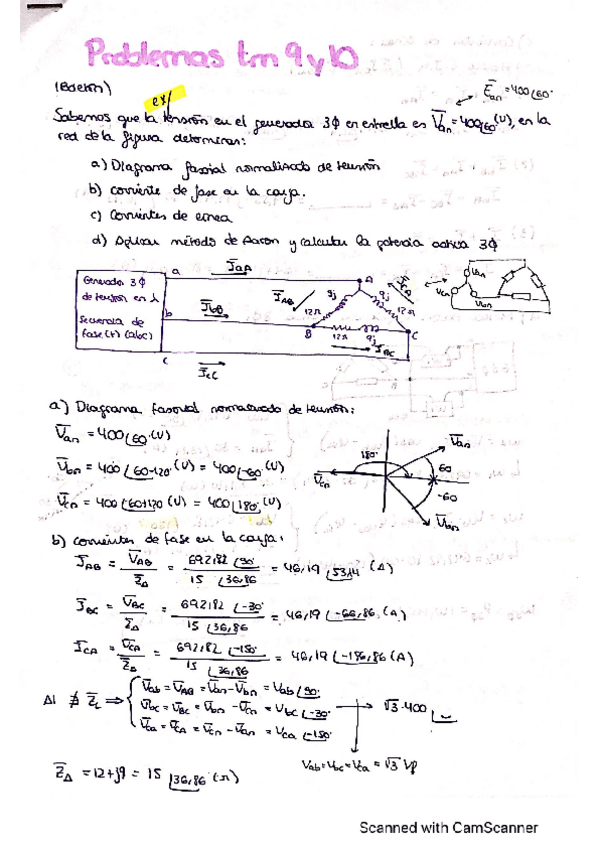 Problemas tm 9 y 10
(Boletín)
ex/
Ēan = 400∠60°
Sabemos que la tensión en el generador 3ϕ en estrella es V̄an = 400∠60° (V), en la
red de la figura determinar:
a) Diagrama fasorial normalizado de tensión
b) corriente de fase en la carga.
c) Corrientes de línea
d) Aplicar método de Aaron y calcular la potencia activa 3ϕ
Generador 3ϕ
de tensión en ⅄
Secuencia de
fase (+) (abc)
a
b
c
ĪaA
ĪbB
ĪcC
ĪAB
ĪCA
ĪBC
A
B
C
9j
12Ω
9j
12Ω
9j
a) Diagrama fasorial normalizado de tensión:
V̄an = 400∠60° (V)
V̄bn = 400∠60-120° (V) = 400∠-60° (V)
V̄cn = 400∠60+120 (V) = 400∠180° (V)
V̄an
V̄bn
V̄cn
180°
60
-60
b) corrientes de fase en la carga:
ĪAB = V̄AB / Z̄Δ = 692,82∠90° / 15∠36,86 = 46,19∠53,14 (A)
ĪBC = V̄BC / Z̄Δ = 692,82∠-30° / 15∠36,86 = 46,19∠-66,86 (A)
ĪCA = V̄CA / Z̄Δ = 692,82∠-150° / 15∠36,86 = 46,19∠-186,86 (A)
Al ∄ Z̄L ⇒
V̄ab = V̄AB = V̄an - V̄bn = Vab∠90°
V̄bc = V̄BC = V̄bn - V̄cn = Vbc∠-30°
V̄ca = V̄CA = V̄cn - V̄an = Vca∠-150
√3·400
Vab = Vbc = Vca = √3 Vp
Z̄Δ = 12+j9 = 15∠36,86° (Ω)
Scanned with CamScanner